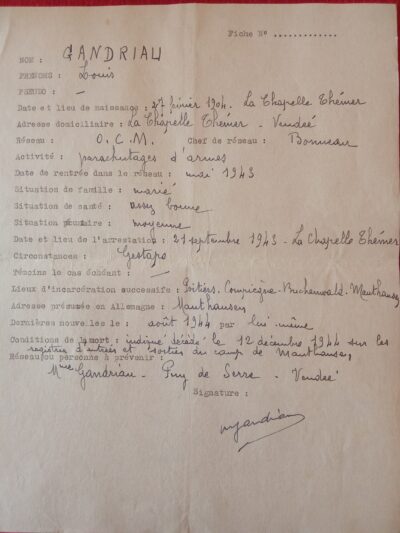 Fiche N° .............
NOM : GANDRIAU
PRENOMS : Louis
PSEUDO : —
Date et lieu de naissance : 27 février 1904. La Chapelle Thémer
Adresse domiciliaire : La Chapelle Thémer - Vendée
Réseau : O.C.M. Chef de réseau : Bonneau
Activité : parachutages d'armes
Date de rentrée dans le réseau : mai 1943
Situation de famille : marié
Situation de santé : assez bonne
Situation pécuniaire : moyenne
Date et lieu de l'arrestation : 21 septembre 1943 - La Chapelle Thémer
Circonstances : Gestapo
Témoins le cas échéant : —
Lieux d'incarcération successifs : Poitiers. Compiègne. Buchenwald. Mauthausen
Adresse présumée en Allemagne : Mauthausen
Dernières nouvelles le : août 1944 par lui-même
Conditions de la mort : indiqué décédé le 12 décembre 1944 sur les
registres d'entrées et sorties du camp de Mauthausen
Réseau ou personne à prévenir :
Mme Gandriau - Puy de Serre - Vendée
Signature :
Gandriau